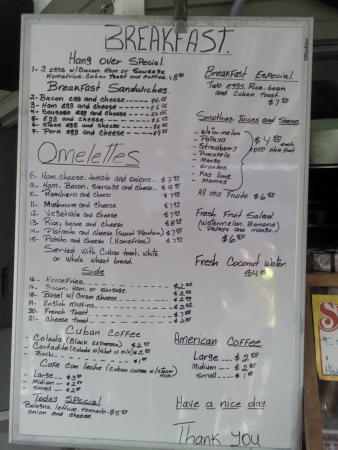 BREAKFAST.
Hang Over Special.
1- 2 eggs w/Bacon, Ham or Sausage
Homefries. Cuban Toast and coffee. $8
Breakfast Sandwiches.
2- Bacon egg and cheese
3- Ham egg and cheese
4- Sausage egg and cheese
5- Egg and cheese
6- Steak egg and cheese
7- Pork egg and cheese
Omelettes
8- Ham, cheese, tomato and onions
9- Ham, Bacon, Sausage and cheese
10- Ranchero and cheese
11- Mushroom and cheese
12- Vegetable and cheese
13- Rice, beans and cheese
14- Platanito and cheese (Sweet Plantain)
15- Potato and cheese (Homefries)
Served with Cuban toast, white
or whole wheat bread.
Side
16- Homefries
17- Bacon, Ham, or Sausage
18- Bagel w/ Cream cheese
19- English Muffins
20- French Toast
21- Cheese Toast
Cuban Coffee
Colada (Black Espresso)
Cortadito (Colada w/ of Mix)
Buchi
Cafe con leche (Cuban Coffee w/
Large
Midium
Small
Today Special
lettuce, tomato $5
onion and cheese
Breakfast Especial.
Two eggs, Rice, bean
and Cuban Toast.
$7
Smothes, Juices and Shake
- Watermelon
- Papaya
- Strawberry
- Pineapple
- Mango
- Orange
- Key lime
- Mamey
$4 each
All mix Fruits $6
Fresh Fruit Salad
(Watermelon, Banana)
(Papaya and mango)
$6
Fresh Coconut Water
$4
American Coffee.
Large
Midium
Small
Have a nice day.
Thank You